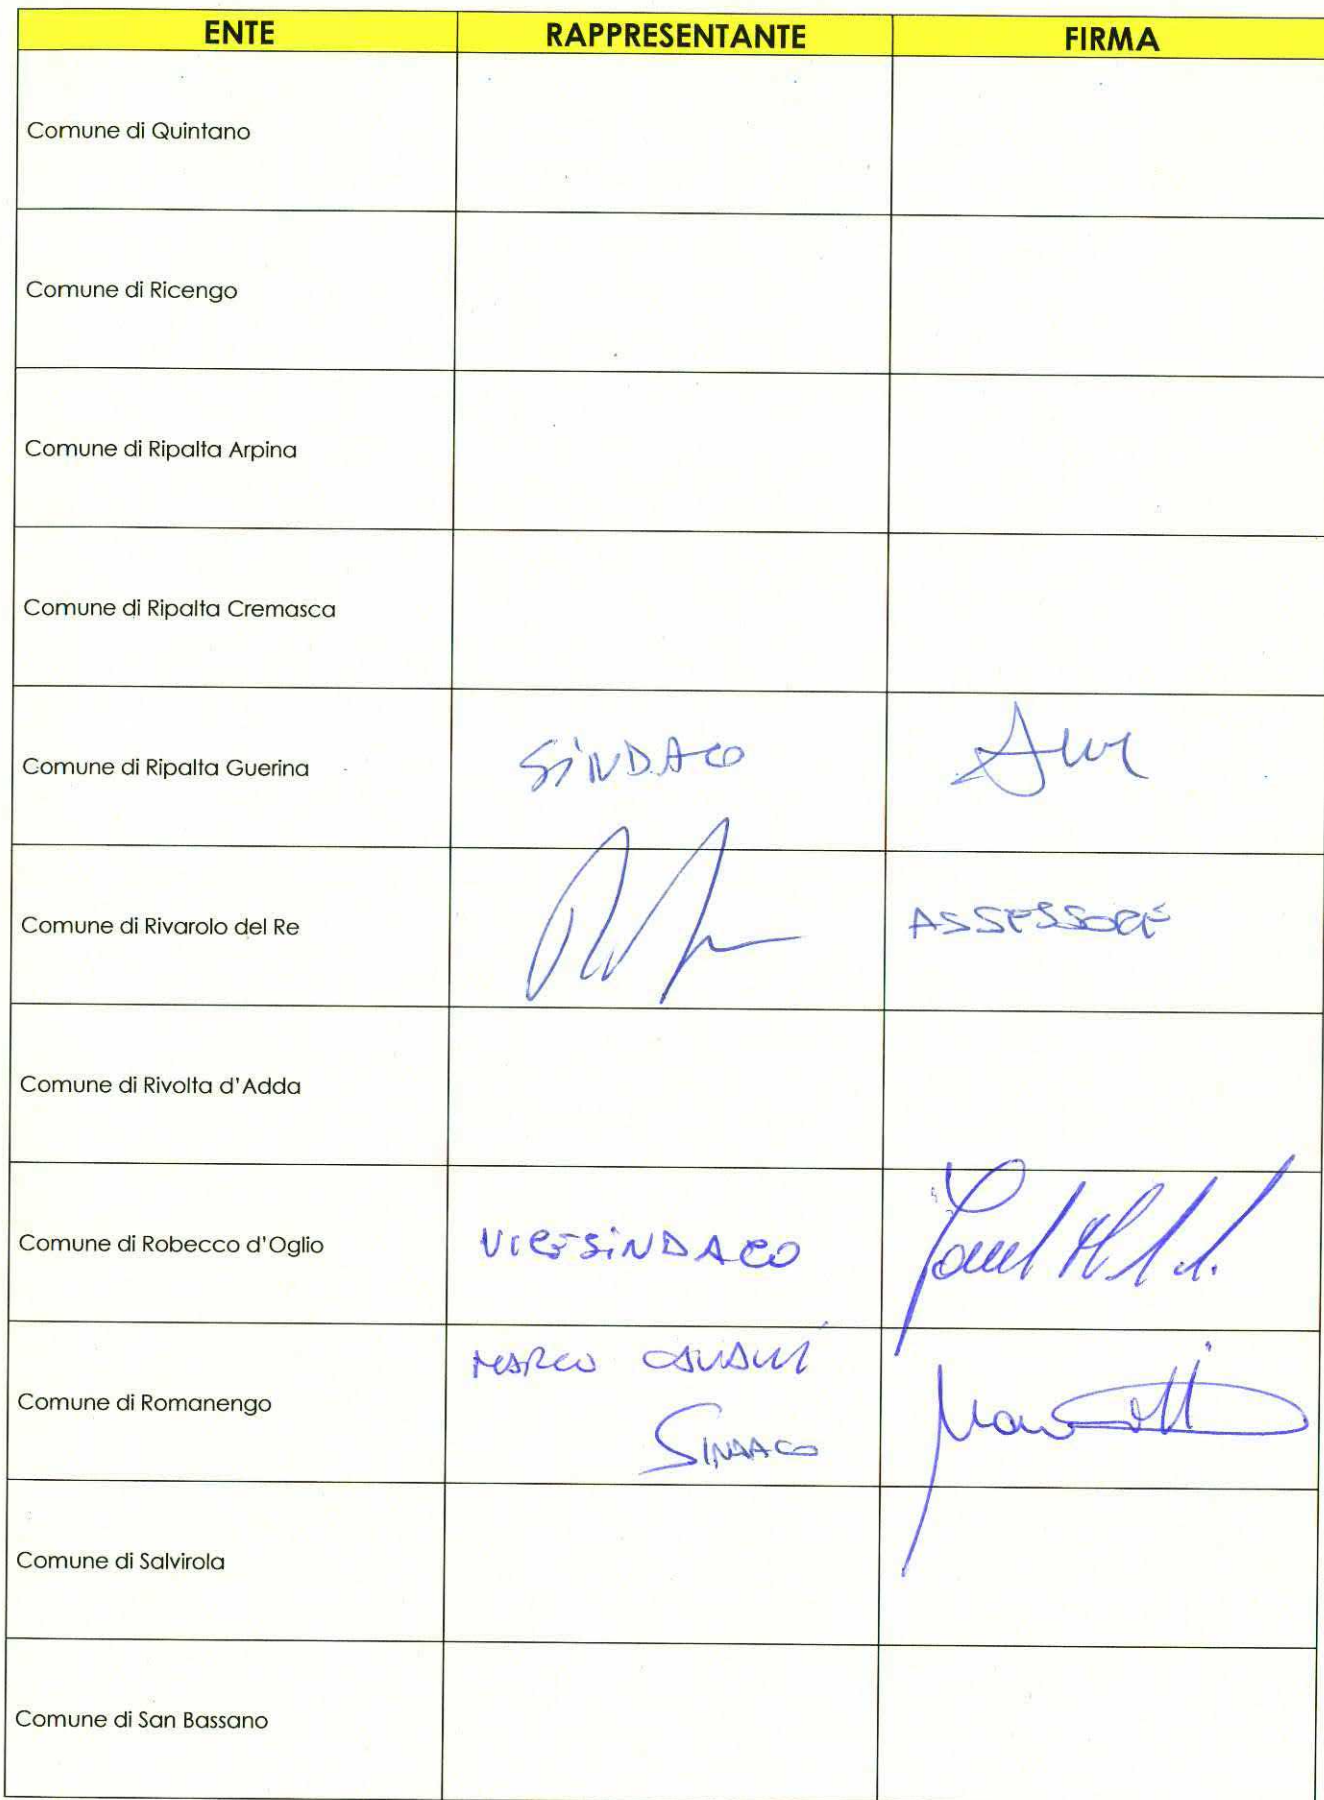 ENTE RAPPRESENTANTE FIRMA
Comune di Quintano
Comune di Ricengo
Comune di Ripalta Arpina
Comune di Ripalta Cremasca
Comune di Ripalta Guerina SINDACO
Comune di Rivarolo del Re ASSESSORE
Comune di Rivolta d'Adda
Comune di Robecco d'Oglio VICESINDACO
MARCO
Comune di Romanengo
SINDACO
Comune di Salvirola
Comune di San Bassano